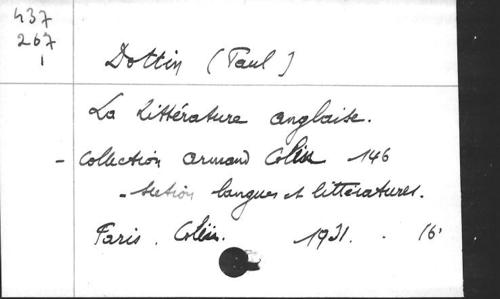 437
267
1
Dottin (Paul)
La Littérature anglaise.
- Collection Armand Colin 146
- Section langues et littératures.
Paris. Colin. 1931. - 16°